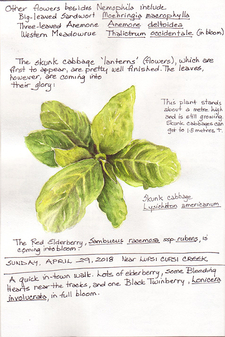 Other flowers besides Nemophila include:
Big-leaved Sandwort Moehringia macrophylla
Three-leaved Anemone Anemone deltoidea
Western Meadowrue Thalictrum occidentale (in bloom)
The skunk cabbage 'lanterns' (flowers), which are
first to appear, are pretty well finished. The leaves,
however, are coming into
their glory:
This plant stands
about a metre high
and is still growing.
Skunk cabbages can
get to 1.5 metres +.
Skunk cabbage
Lysichiton americanum.
The Red Elderberry, Sambucus racemosa ssp. rubens, is
coming into bloom.
SUNDAY, APRIL 29, 2018 Near CREEK
A quick in-town walk. Lots of elderberry, some Bleeding
Hearts near the tracks, and one Black Twinberry, Lonicera
involucrata, in full bloom.